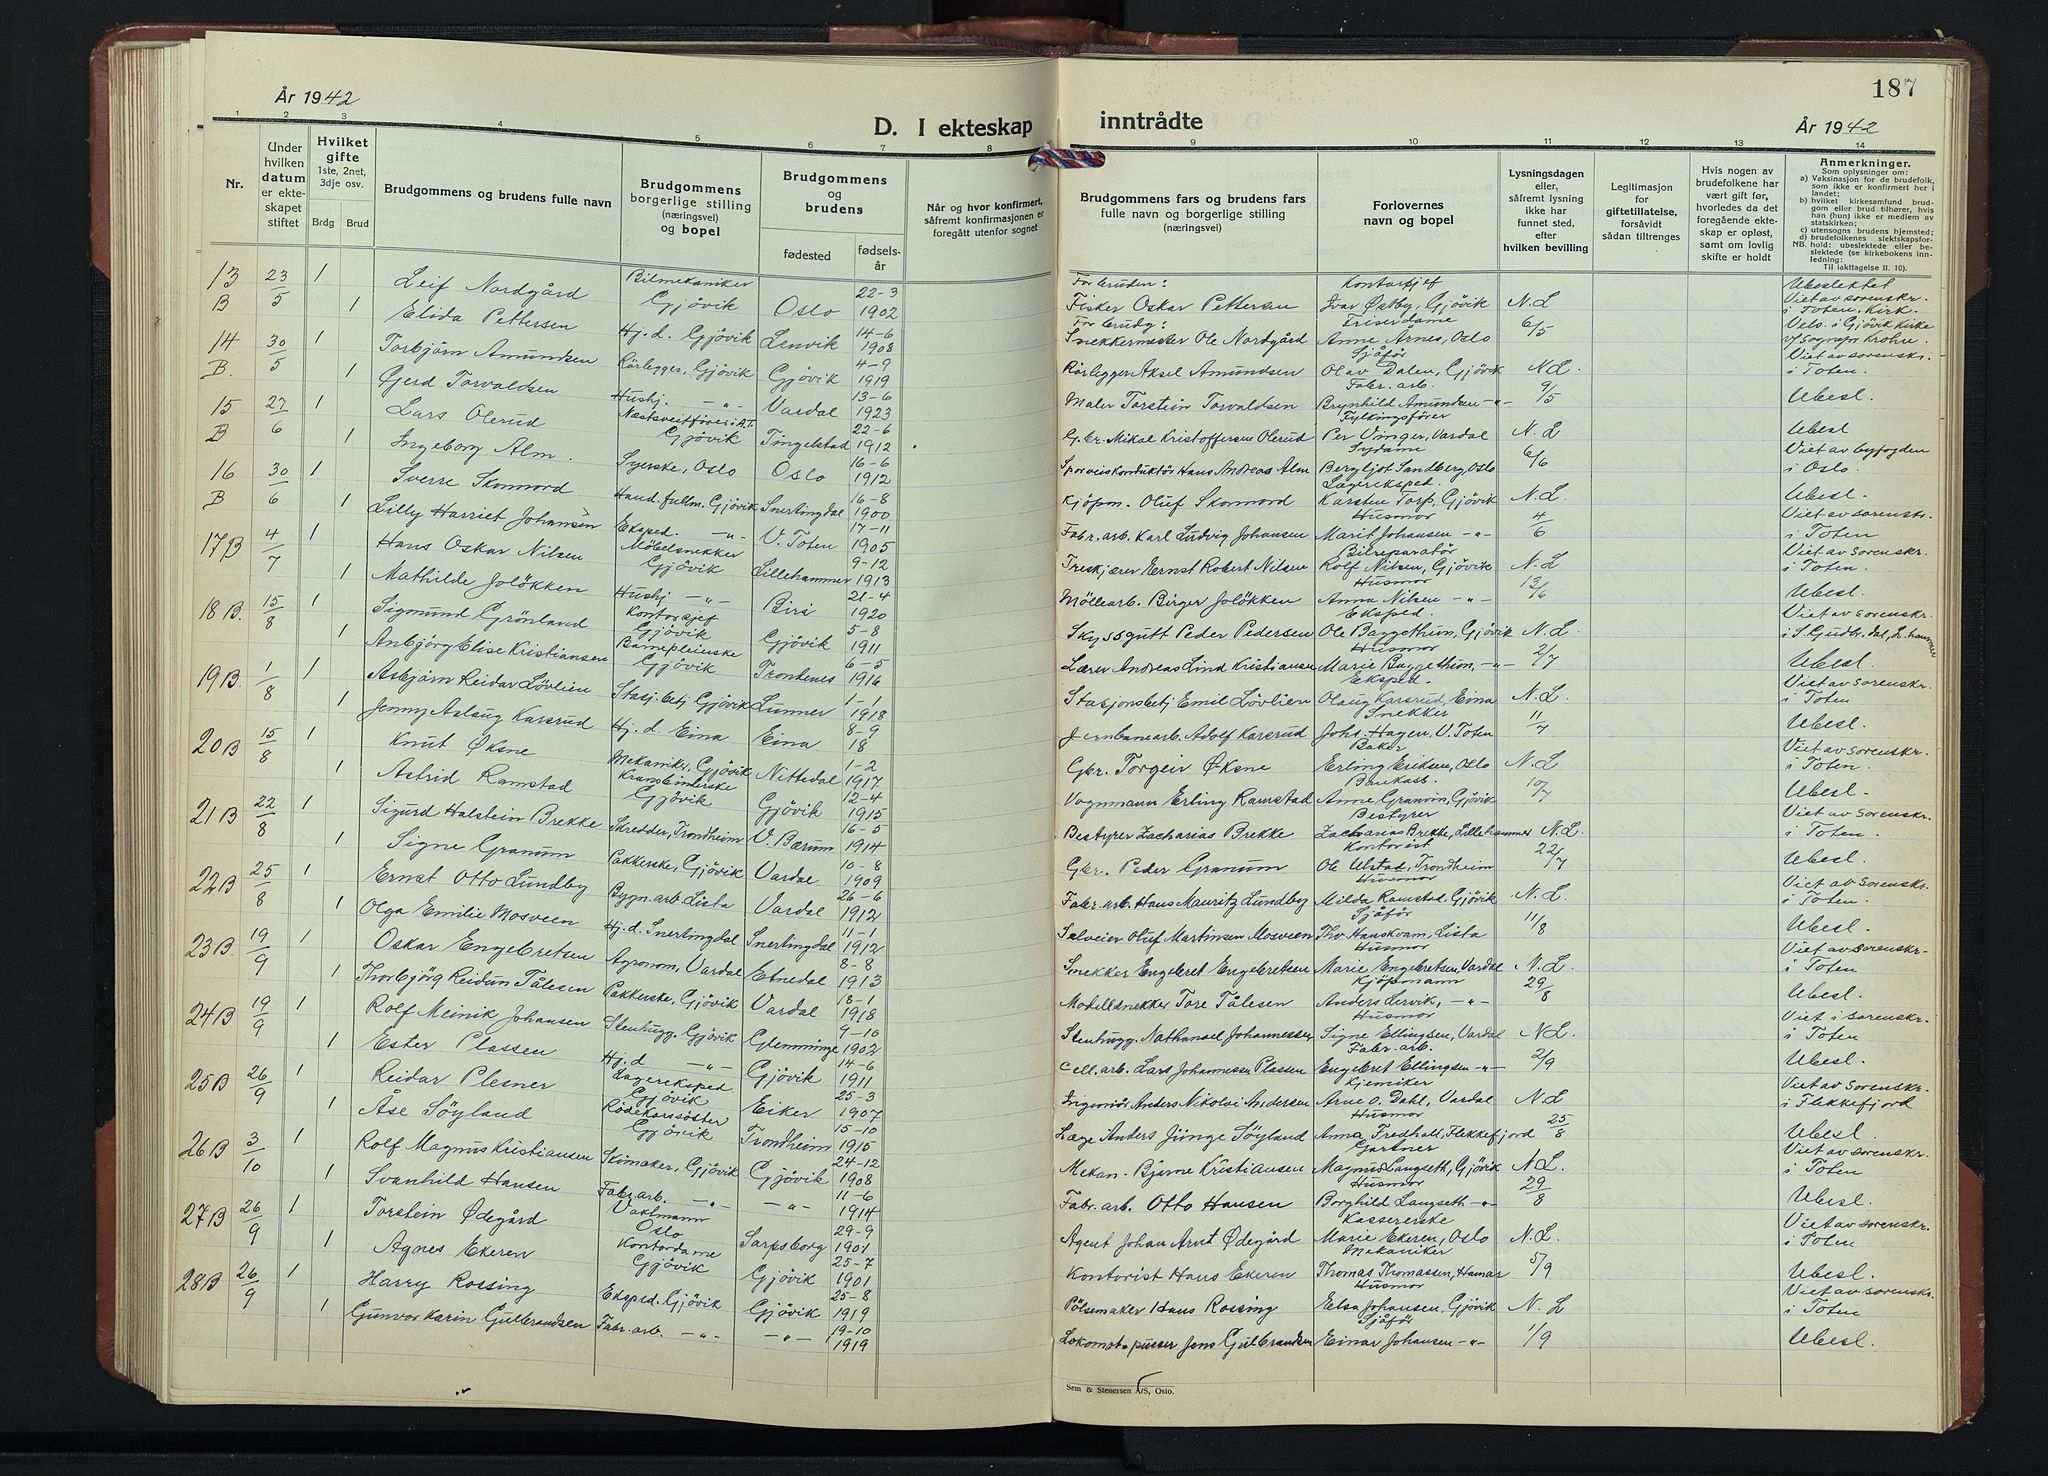 187
År 1942
D. I ekteskap inntrådte
År 1942
1 2 3 4 5 6 7 8 9 10 11 12 13 14
Nr.
Under hvilken datum er ekteskapet stiftet
Hvilket gifte 1ste, 2net, 3dje osv.
Brdg Brud
Brudgommens og brudens fulle navn
Brudgommens borgerlige stilling (næringsvei) og bopel
Brudgommens og brudens
fødested
fødselsår
Når og hvor konfirmert, såfremt konfirmasjonen er foregått utenfor sognet
Brudgommens fars og brudens fars fulle navn og borgerlige stilling (næringsvei)
Forlovernes navn og bopel
Lysningsdagen eller, såfremt lysning ikke har funnet sted, efter hvilken bevilling
Legitimasjon for giftetillatelse, forsåvidt sådan tiltrenges
Hvis nogen av brudefolkene har vært gift før, hvorledes da det foregående ekteskap er opløst, samt om lovlig skifte er holdt
Anmerkninger.
Som oplysninger om:
a) Vaksinasjon for de brudefolk, som ikke er konfirmert her i landet;
b) hvilket kirkesamfund brudgom eller brud tilhører, hvis han (hun) ikke er medlem av statskirken;
c) utensogns brudens hjemsted;
d) brudefolkenes slektskapsforhold: ubeslektede eller beslektede (se kirkebokens innledning:
NB.
Til iakttagelse II. 10).
13 B 23/5 1 Leif Nordgård Bilmekaniker Gjövik Oslo 22-3 1902 For bruden: Fisker Oskar Pettersen Kontorsjef Ivar Østby, Gjövik N.L. Ubeslektet Viet av sorenskr. i Toten. Kirk.
1 Elida Pettersen Hj.d. Gjövik Lenvik 14-6 1908 For brudg: Snekkermester Ole Nordgård Friserdame Anne Årnes, Oslo 6/5 Vels. i Gjövik Kirke v/ sognepr. Krohn
14 B. 30/5 1 Torbjörn Amundsen Rörlegger, Gjövik Gjövik 4-9 1919 Rörlegger Aksel Amundsen Sjåför Olav Dalen, Gjövik N.L. Viet av sorenskr. i Toten.
1 Gerd Torvaldsen Hushj. -"- Vardal 13-6 1923 Maler Torstein Torvaldsen Fabr.arb. Brynhild Amundsen -"- 9/5 Ubesl.
15 B 27/6 1 Lars Olerud Gjövik Tingelstad 22-6 1912 Gbr. Mikal Kristoffersen Olerud Fylkingsförer Per Vinger, Vardal N.L. Ubesl Viet av byfogden
1 Ingeborg Alm. Syerske, Oslo Oslo 16-6 1912 Sporveiskonduktör Hans Andreas Alm Sydame Bergljot Sandberg, Oslo 6/6 i Oslo.
16 B 30/6 1 Sverre Skonnord Hand.fullm. Gjövik Snertingdal 16-8 1900 Kjöpm. Oluf Skonnord Lagereksped. Karsten Torp, Gjövik N.L. Ubesl. Viet av sorenskr.
1 Lilly Harriet Johansen Eksped. -"- V. Toten 17-11 1905 Fabr.arb. Karl Ludvig Johansen Husmor Marit Johansen -"- 4/6 i Toten
17 B 4/7 1 Hans Oskar Nilsen Möbelsnekker Gjövik Lillehammer 9-12 1913 Treskjærer Ernst Robert Nilsen Bilreparatör Rolf Nilsen, Gjövik N.L. Viet av sorenskr. i Toten.
1 Mathilde Jolökken Hushj -"- Biri 21-4 1920 Möllearb. Birger Jolökken Husmor Anna Nilsen -"- 13/6 Ubesl.
18 B. 15/8 1 Sigmund Grönland Kontorsjef Gjövik Gjövik 5-8 1911 Skyssgutt Peder Pedersen Eksped. Ole Baggethun, Gjövik N.L. Viet av sorenskr. i S. Gudbr.dal, L.hammer
1 Anbjörg Elise Kristiansen Barnepleierske Gjövik Trondenes 6-5 1916 Lærer Andreas Lind Kristiansen Husmor Marie Baggethun, -"- 2/7 Ubesl.
19 B. 1/8 1 Asbjörn Reidar Lövlien Stasj.betj. Gjövik Lunner 1-1 1918 Stasjonsbetj. Emil Lövlien Eksped. Olaug Karsrud, Eina N.L. Viet av sorenskr. i Toten.
1 Jenny Aslaug Karsrud Hj.d. Eina Eina 8-9 18 Jernbanearb. Adolf Karsrud Snekker Johs. Hagen, V. Toten 11/7 Ubesl.
20 B 15/8 1 Knut Øksne Mekaniker, Gjövik Nittedal 1-2 1917 Gbr. Torgeir Øksne Baker Erling Eriksen, Oslo N.L. Viet av sorenskr. i Toten.
1 Astrid Ramstad Kransbinderske Gjövik Gjövik 12-4 1915 Vognmann Erling Ramstad Anne Granum, Gjövik 10/7 Ubesl.
21 B 22/8 1 Sigurd Halstein Brekke Skredder, Trondheim V. Bærum 16-5 1914 Bestyrer Zacharias Brekke Bestyrer Zacharias Brekke, Lillehammer N.L. Viet av sorenskr. i Toten.
1 Signe Granum Pakkerske, Gjövik Vardal 10-8 1909 Gbr. Peder Granum Kontorist Ole Ulstad, Trondheim 22/7 Ubesl.
22 B 25/8 1 Ernst Otto Lundby Bygn.arb. Lista Vardal 26-6 1912 Fabr.arb. Hans Mauritz Lundby Husmor Milda Ramstad, Gjövik N.L. Viet av sorenskr. i Toten.
1 Olga Emilie Mosveen Hj.d. Snertingdal Snertingdal 11-1 1912 Salveier Oluf Martinsen Mosveen Sjåför Thv. Hanskvam, Lista 11/8 Ubesl.
23 B. 19/9 1 Oskar Engebretsen Agronom, Vardal Etnedal 8-8 1913 Snekker Engebret Engebretsen Husmor Marie Engebretsen, Vardal N.L. Viet av sorenskr. i Toten
1 Thorbjörg Reidun Tålesen Pakkerske, Gjövik Vardal 18-1 1918 Modellsnekker Tore Tålesen Kjöpmann Anders Lervik, -"- 29/8 Ubesl.
24 B 19/9 1 Rolf Meinik Johansen Stenhugg. Gjövik Glemminge 9-10 1902 Stenhugg. Nathanael Johannessen Husmor Signe Ellingsen, Vardal N.L. Viet i sorenskr. i Toten
1 Ester Plassen Hj.d -"- Gjövik 14-6 1911 Cell.arb. Lars Johannessen Plassen Fabr.arb. Engebret Ellingsen -"- 2/9 Ubesl.
25 B 26/9 1 Reidar Plesner Lagereksped Gjövik Eiker 25-3 1907 Ingeniör Anders Nikolai Andersen Kjemiker Arne O. Dahl, Vardal N.L. Viet av sorenskr. i Flekkefjord
1 Åse Söyland Rödekorssöster Gjövik Trondheim 15-10 1915 Læge Anders Jünge Söyland Husmor Anna Fredhall, Flekkefjord 25/8 Ubesl.
26 B 3/10 1 Rolf Magnus Kristiansen Skimaker, Gjövik Gjövik 24-12 1908 Mekan. Bjarne Kristiansen Gartner Magnus Langseth, Gjövik N.L. Viet av sorenskr. i Toten
1 Svanhild Hansen Fabr.arb. -"- -"- 11-6 1914 Fabr.arb. Otto Hansen Husmor Borghild Langseth -"- 29/8 Ubesl.
27 B 26/9 1 Torstein Ødegård Vaktmann Oslo Sarpsborg 29-9 1901 Agent Johan Arnt Ødegård Kassererske Marie Ekeren, Oslo N.L. Viet av sorenskr. i Toten
1 Agnes Ekeren Kontordame Gjövik Gjövik 25-7 1901 Kontorist Hans Ekeren Mekaniker Thomas Thomassen, Hamar 5/9 Ubesl.
28 B 26/9 1 Harry Rossing Eksped. Gjövik Gjövik 25-8 1919 Pölsemaker Hans Rossing Husmor Elsa Johansen, Gjövik N.L. Viet av sorenskr. i Toten
1 Gunvor Karin Gulbrandsen Fabr.arb. -"- -"- 19-10 1919 Lokomotivpusser Jens Gulbrandsen Sjåför Einar Johansen -"- 1/9 Ubesl.
Sem & Stenersen A/S, Oslo.